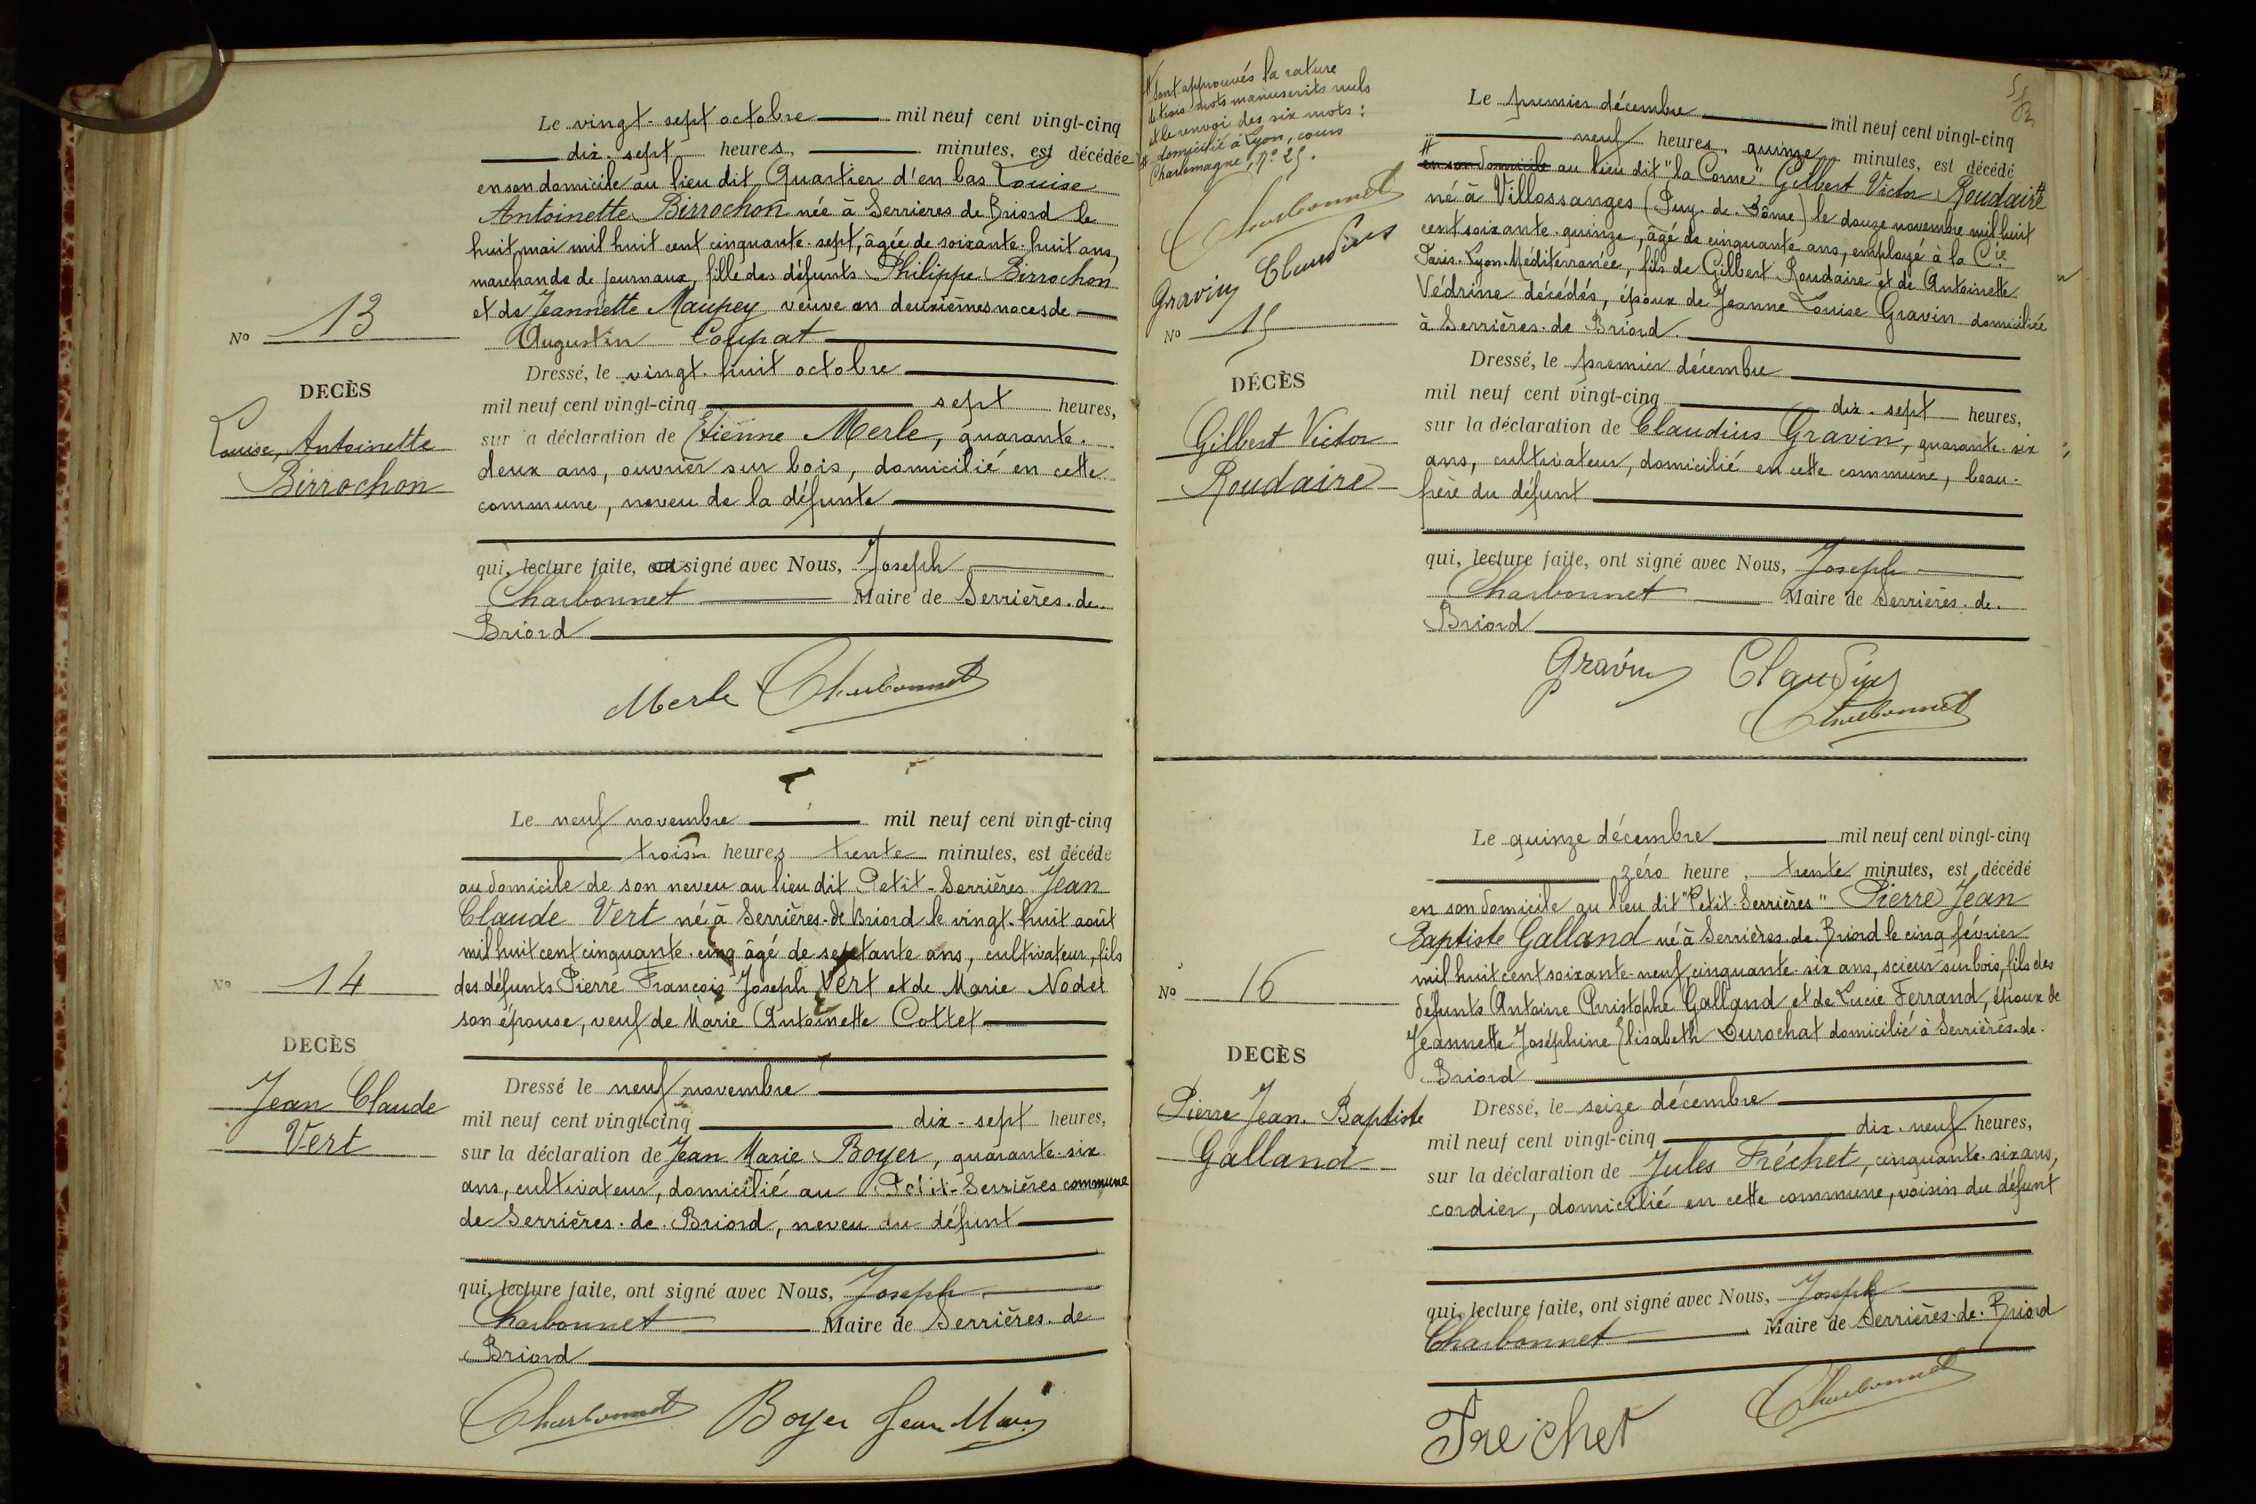 Le vingt-sept octobre mil neuf cent vingt-cinq
dix-sept heures, minutes, est décédée
en son domicile au lieu dit Quartier d'en bas Louise
Antoinette Birrochon née à Serrières de Briord le
huit mai mil huit cent cinquante-sept, âgée de soixante-huit ans,
marchande de journaux, fille des défunts Philippe Birrochon
et de Jeannette Maupey veuve en deuxièmes noces de
Augustin Coupat
No 13
DECÈS
Louise, Antoinette
Birrochon
Dressé, le vingt-huit octobre
mil neuf cent vingt-cinq sept heures,
sur a déclaration de Etienne Merle, quarante-
deux ans, ouvrier sur bois, domicilié en cette
commune, neveu de la défunte
qui, lecture faite, a signé avec Nous, Joseph
Charbonnet Maire de Serrières-de-
Briord
Merle Charbonnet
Le neuf novembre mil neuf cent vingt-cinq
trois heures trente minutes, est décédé
au domicile de son neveu au lieu dit Petit-Serrières Jean
Claude Vert né à Serrières-de-Briord le vingt-huit août
mil huit cent cinquante-cinq âgé de septante ans, cultivateur, fils
des défunts Pierre François Joseph Vert et de Marie Nodet
son épouse, veuf de Marie Antoinette Cottet
No 14
DECÈS
Jean Claude
Vert
Dressé le neuf novembre
mil neuf cent vingt-cinq dix-sept heures,
sur la déclaration de Jean Marie Boyer, quarante-six
ans, cultivateur, domicilié au Petit-Serrières commune
de Serrières-de-Briord, neveu du défunt
qui, lecture faite, ont signé avec Nous, Joseph
Charbonnet Maire de Serrières-de
Briord
Charbonnet Boyer Jean Marie
# Sont approuvés la rature
de trois mots manuscrits nuls
et le renvoi des six mots :
# domicilié à Lyon, cours
Charlemagne, n° 25.
Charbonnet
Gravin Claudius
Le premier décembre mil neuf cent vingt-cinq
neuf heures, quinze minutes, est décédé
# en son domicile au lieu dit "la Corne" Gilbert Victor Roudaire #
né à Villossanges (Puy-de-Dôme) le douze novembre mil huit
cent soixante-quinze, âgé de cinquante ans, employé à la Cie
Paris-Lyon-Méditerranée, fils de Gilbert Roudaire et de Antoinette
Védrine décédés, époux de Jeanne Louise Gravin domiciliée
à Serrières-de Briord.
No 15
DÉCÈS
Gilbert Victor
Roudaire
Dressé, le premier décembre
mil neuf cent vingt-cinq dix-sept heures,
sur la déclaration de Claudius Gravin, quarante-six
ans, cultivateur, domicilié en cette commune, beau-
frère du défunt
qui, lecture faite, ont signé avec Nous, Joseph
Charbonnet Maire de Serrières-de-
Briord
Gravin Claudius
Charbonnet
Le quinze décembre mil neuf cent vingt-cinq
zéro heure, trente minutes, est décédé
en son domicile au lieu dit "Petit-Serrières" Pierre Jean
Baptiste Galland né à Serrières-de-Briord le cinq février
mil huit cent soixante-neuf cinquante-six ans, scieur sur bois, fils des
défunts Antoine Christophe Galland et de Lucie Ferrand, époux de
Jeannette Joséphine Elisabeth Durochat domicilié à Serrières-de-
Briord
No 16
DECÈS
Pierre Jean-Baptiste
Galland
Dressé, le seize décembre
mil neuf cent vingt-cinq dix-neuf heures,
sur la déclaration de Jules Fréchet, cinquante-six ans,
cordier, domicilié en cette commune, voisin du défunt
qui, lecture faite, ont signé avec Nous, Joseph
Charbonnet Maire de Serrières-de-Briord
Charbonnet
Freichet